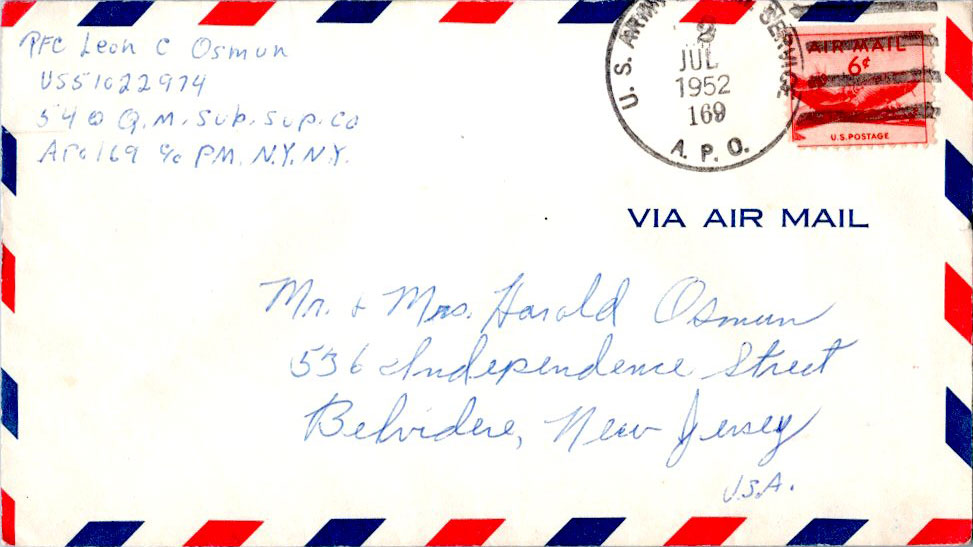 PFC Leon C Osmun
US51022974
540 Q.M. Sub. Sup. Co
APO 169 c/o PM. N.Y. N.Y.
U.S. ARMY SERVICE
2
JUL
1952
169
A.P.O.
AIR MAIL
6¢
U.S. POSTAGE
VIA AIR MAIL
Mr. & Mrs. Harold Osmun
536 Independence Street
Belvidere, New Jersey
U.S.A.